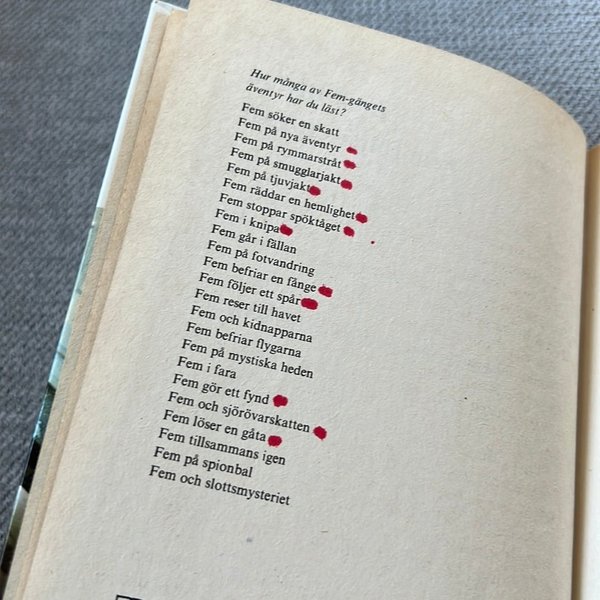 Hur många av Fem-gängets
äventyr har du läst?
Fem söker en skatt
Fem på nya äventyr
Fem på rymmarstråt
Fem på smugglarjakt
Fem på tjuvjakt
Fem räddar en hemlighet
Fem stoppar spöktåget
Fem i knipa
Fem går i fällan
Fem på fotvandring
Fem befriar en fånge
Fem följer ett spår
Fem reser till havet
Fem och kidnapparna
Fem befriar flygarna
Fem på mystiska heden
Fem i fara
Fem gör ett fynd
Fem och sjörövarskatten
Fem löser en gåta
Fem tillsammans igen
Fem på spionbal
Fem och slottsmysteriet